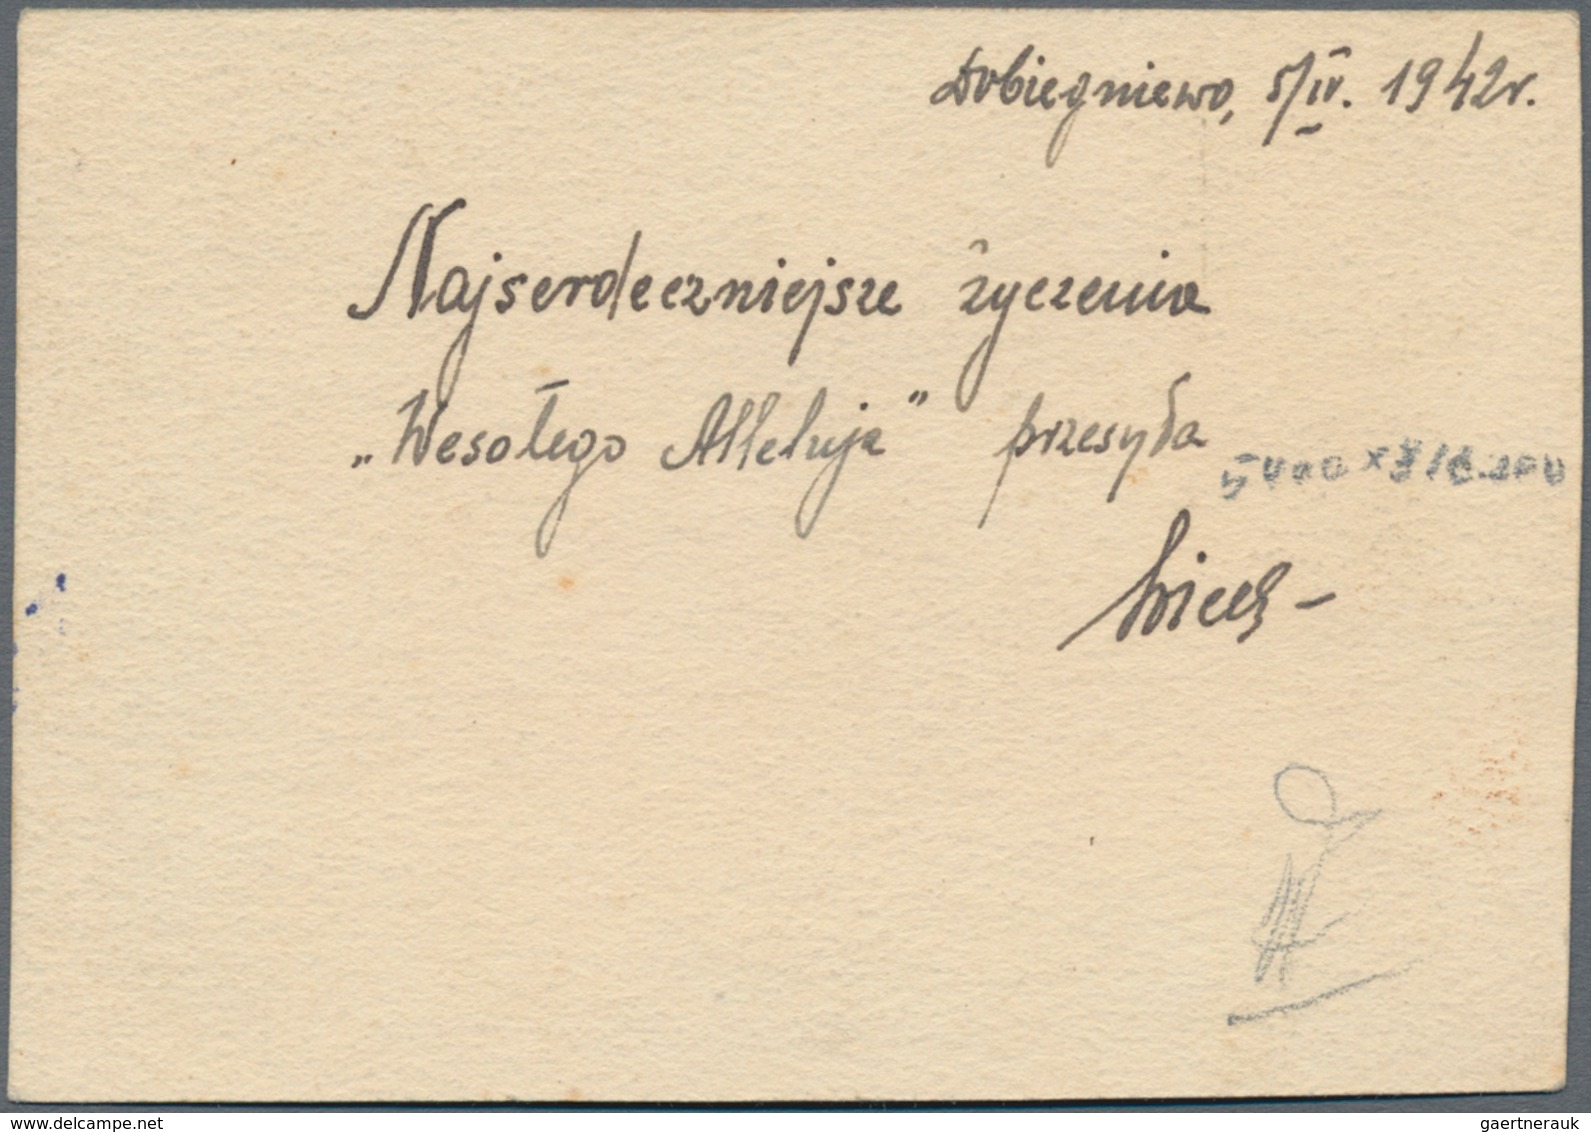 Dobiegniewo, 5/IV. 1942r.
Najserdeczniejsze życzenia
„Wesołego Alleluja” przesyła
www.delcampe.net
gaertnerauk